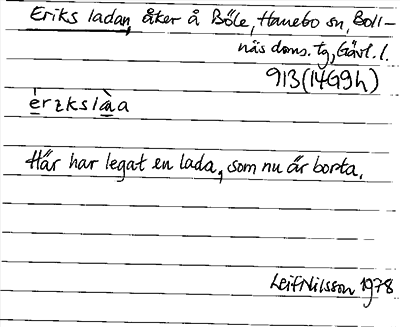 Eriks ladan, åker å Böle, Hanebo sn, Boll-
näs doms. tg, Gävl. l.
913 (14G9h)
èrɪkslàa
Här har legat en lada, som nu är borta.
Leif Nilsson 1978